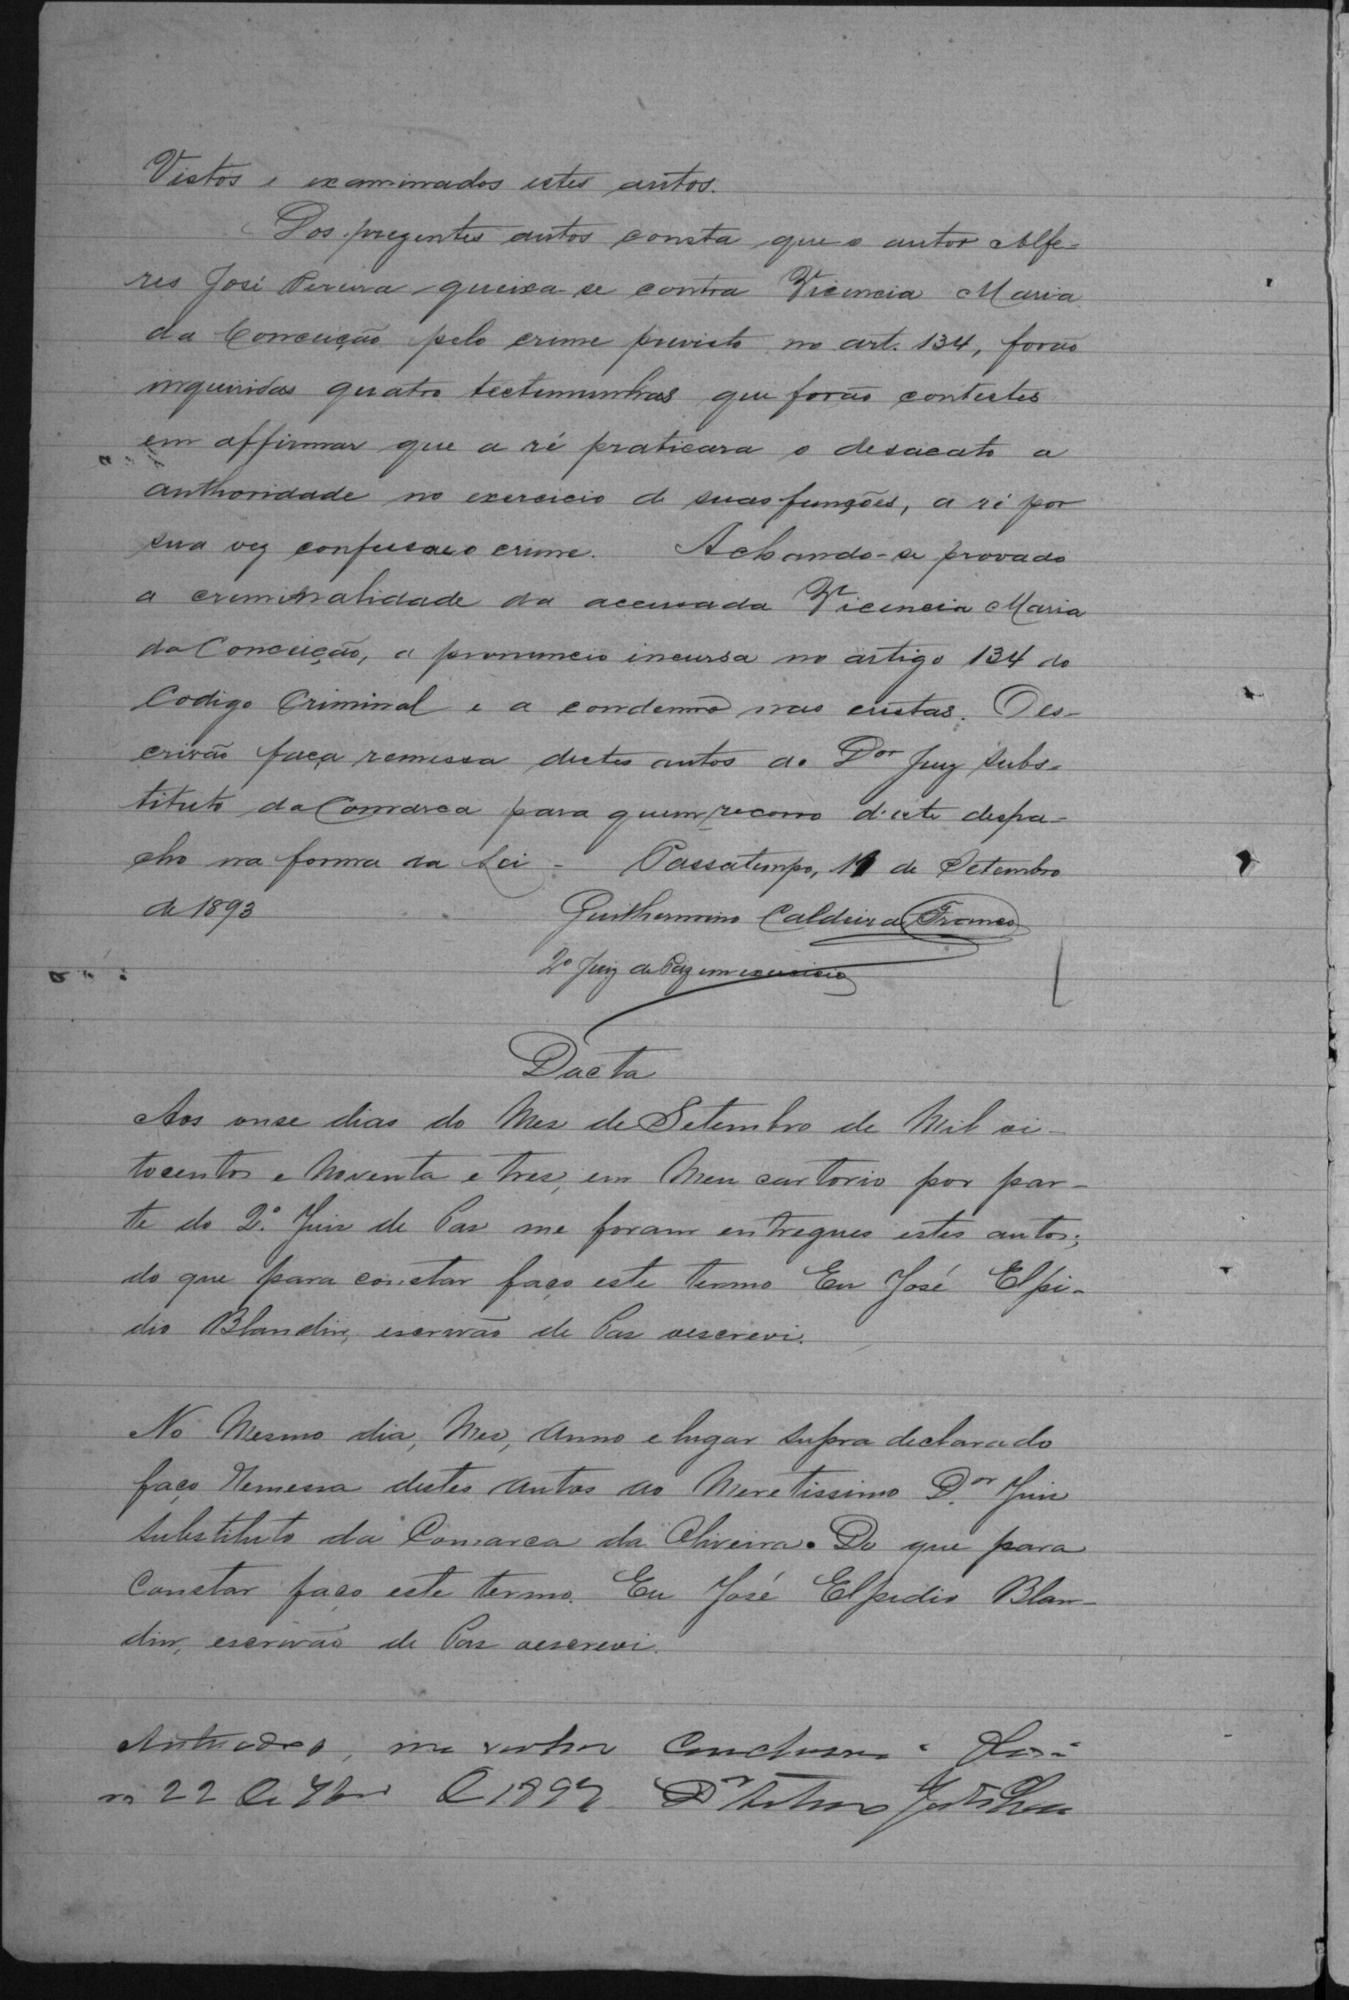 Vistos e examinados estes autos.
Dos prezentes autos consta que o autor Alfe-
res José Pereira queixa-se contra Vicencia Maria
da Conceição pelo crime previsto no art. 134, forão
inqueridas quatro testemunhas que forão contestes
em affirmar que a ré praticara o desacato a
authoridade no exercicio de suas funções, a ré por
sua vez confessa o crime. Achando-se provado
a criminalidade da accusada Vicencia Maria
da Conceição, a pronuncio incursa no artigo 134 do
Codigo Criminal e a condemno nas custas. O es-
crivão faça remessa destes autos ao Dor Juiz subs-
tituto da Comarca para quem recorro d'este despa-
cho na forma da Lei - Passatempo, 11 de Setembro
de 1893
Guilhermino Caldeira Franco
2º Juiz de Paz em exercicio
Dacta
Aos onse dias do Mez de Setembro de Mil oi-
tocentos e Noventa e tres, em Meu cartorio por par-
te do 2º. Juiz de Paz me foram entregues estes autos;
do que para constar faço este termo Eu José Elpi-
dio Blandin, escrivão de Paz oescrevi.
No Mesmo dia, Mez, Anno e lugar supra declarado
faço Remessa destes Autos ao Meretissimo D.or Juiz
Substituto da Comarca da Oliveira. Do que para
Constar faço este termo. Eu José Elpidio Blan-
din, escrivão de Paz oescrevi.
me venhão Conclusos
22 de 7bro